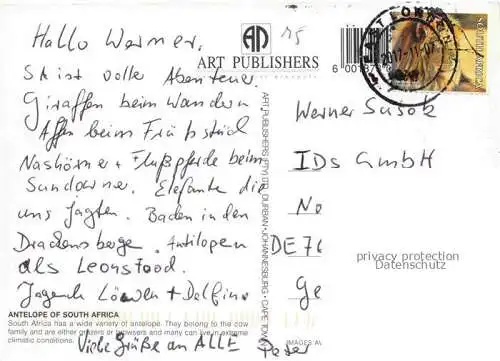 Hallo Werner,
SA ist voller Abenteuer.
Giraffen beim Wandern
Affen beim Frühstück
Nashörner + Flußpferde beim
Sundowner. Elefante die
uns jagten. Baden in den
Drackensberge. Antilopen
als Leonsfood.
Jagende Löwen + Delfine
Viele Grüße an ALLE Peter
ANTELOPE OF SOUTH AFRICA
South Africa has a wide variety of antelope. They belong to the cow
family and are either grazers or browsers and many can live in extreme
climatic conditions.
AP
15
ART PUBLISHERS
ART PUBLISHERS (PTY) LTD. DURBAN • JOHANNESBURG • CAPE TOWN
6 001
2017-11-07
SOUTH AFRICA
Werner
IDS GmbH
No
DE 76
Ge
privacy protection
Datenschutz
IMAGES